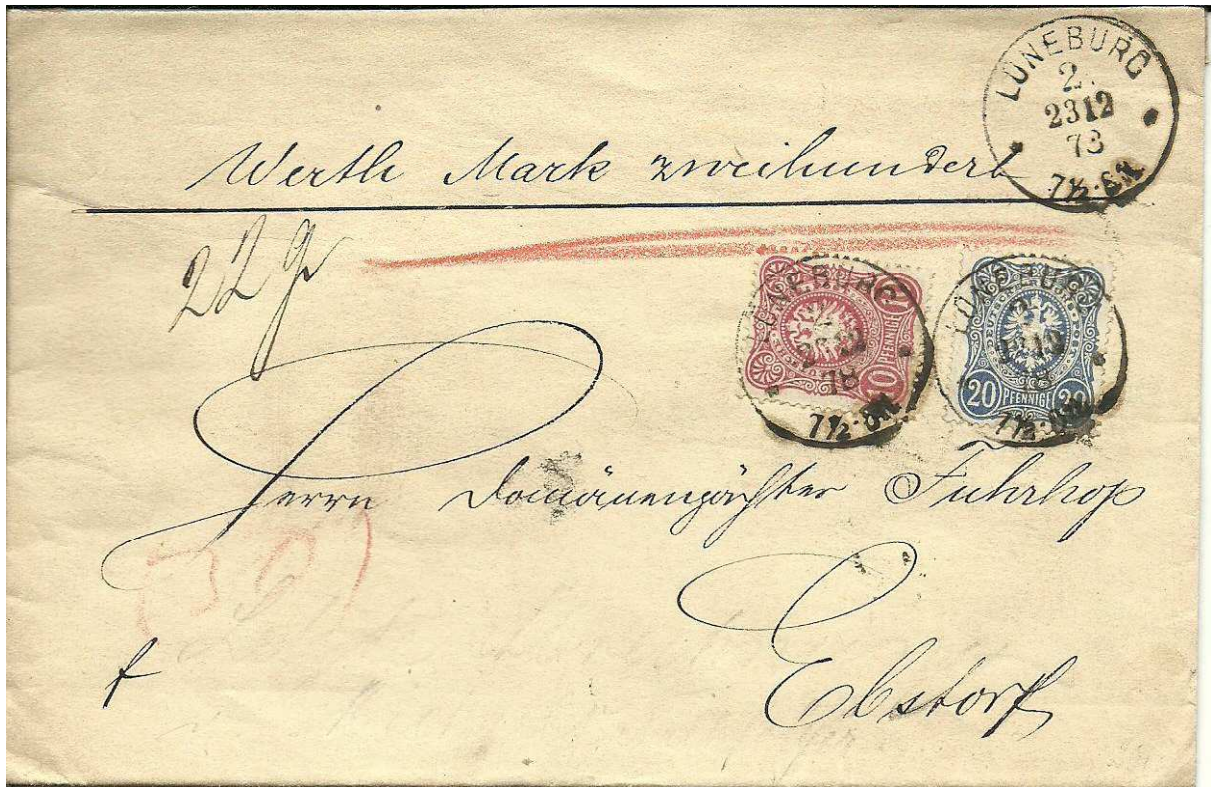 LÜNEBURG
2.
23 12
78
7½-8N.
Werth Mark zweihundert
22 g
LÜNEBURG
12
78
7½-8N.
10
PFENNIGE
LÜNEBURG
12
78
7½-8N.
20 PFENNIGE 20
Herrn Domänenpächter Fuhrhop
30
Ebstorf
f